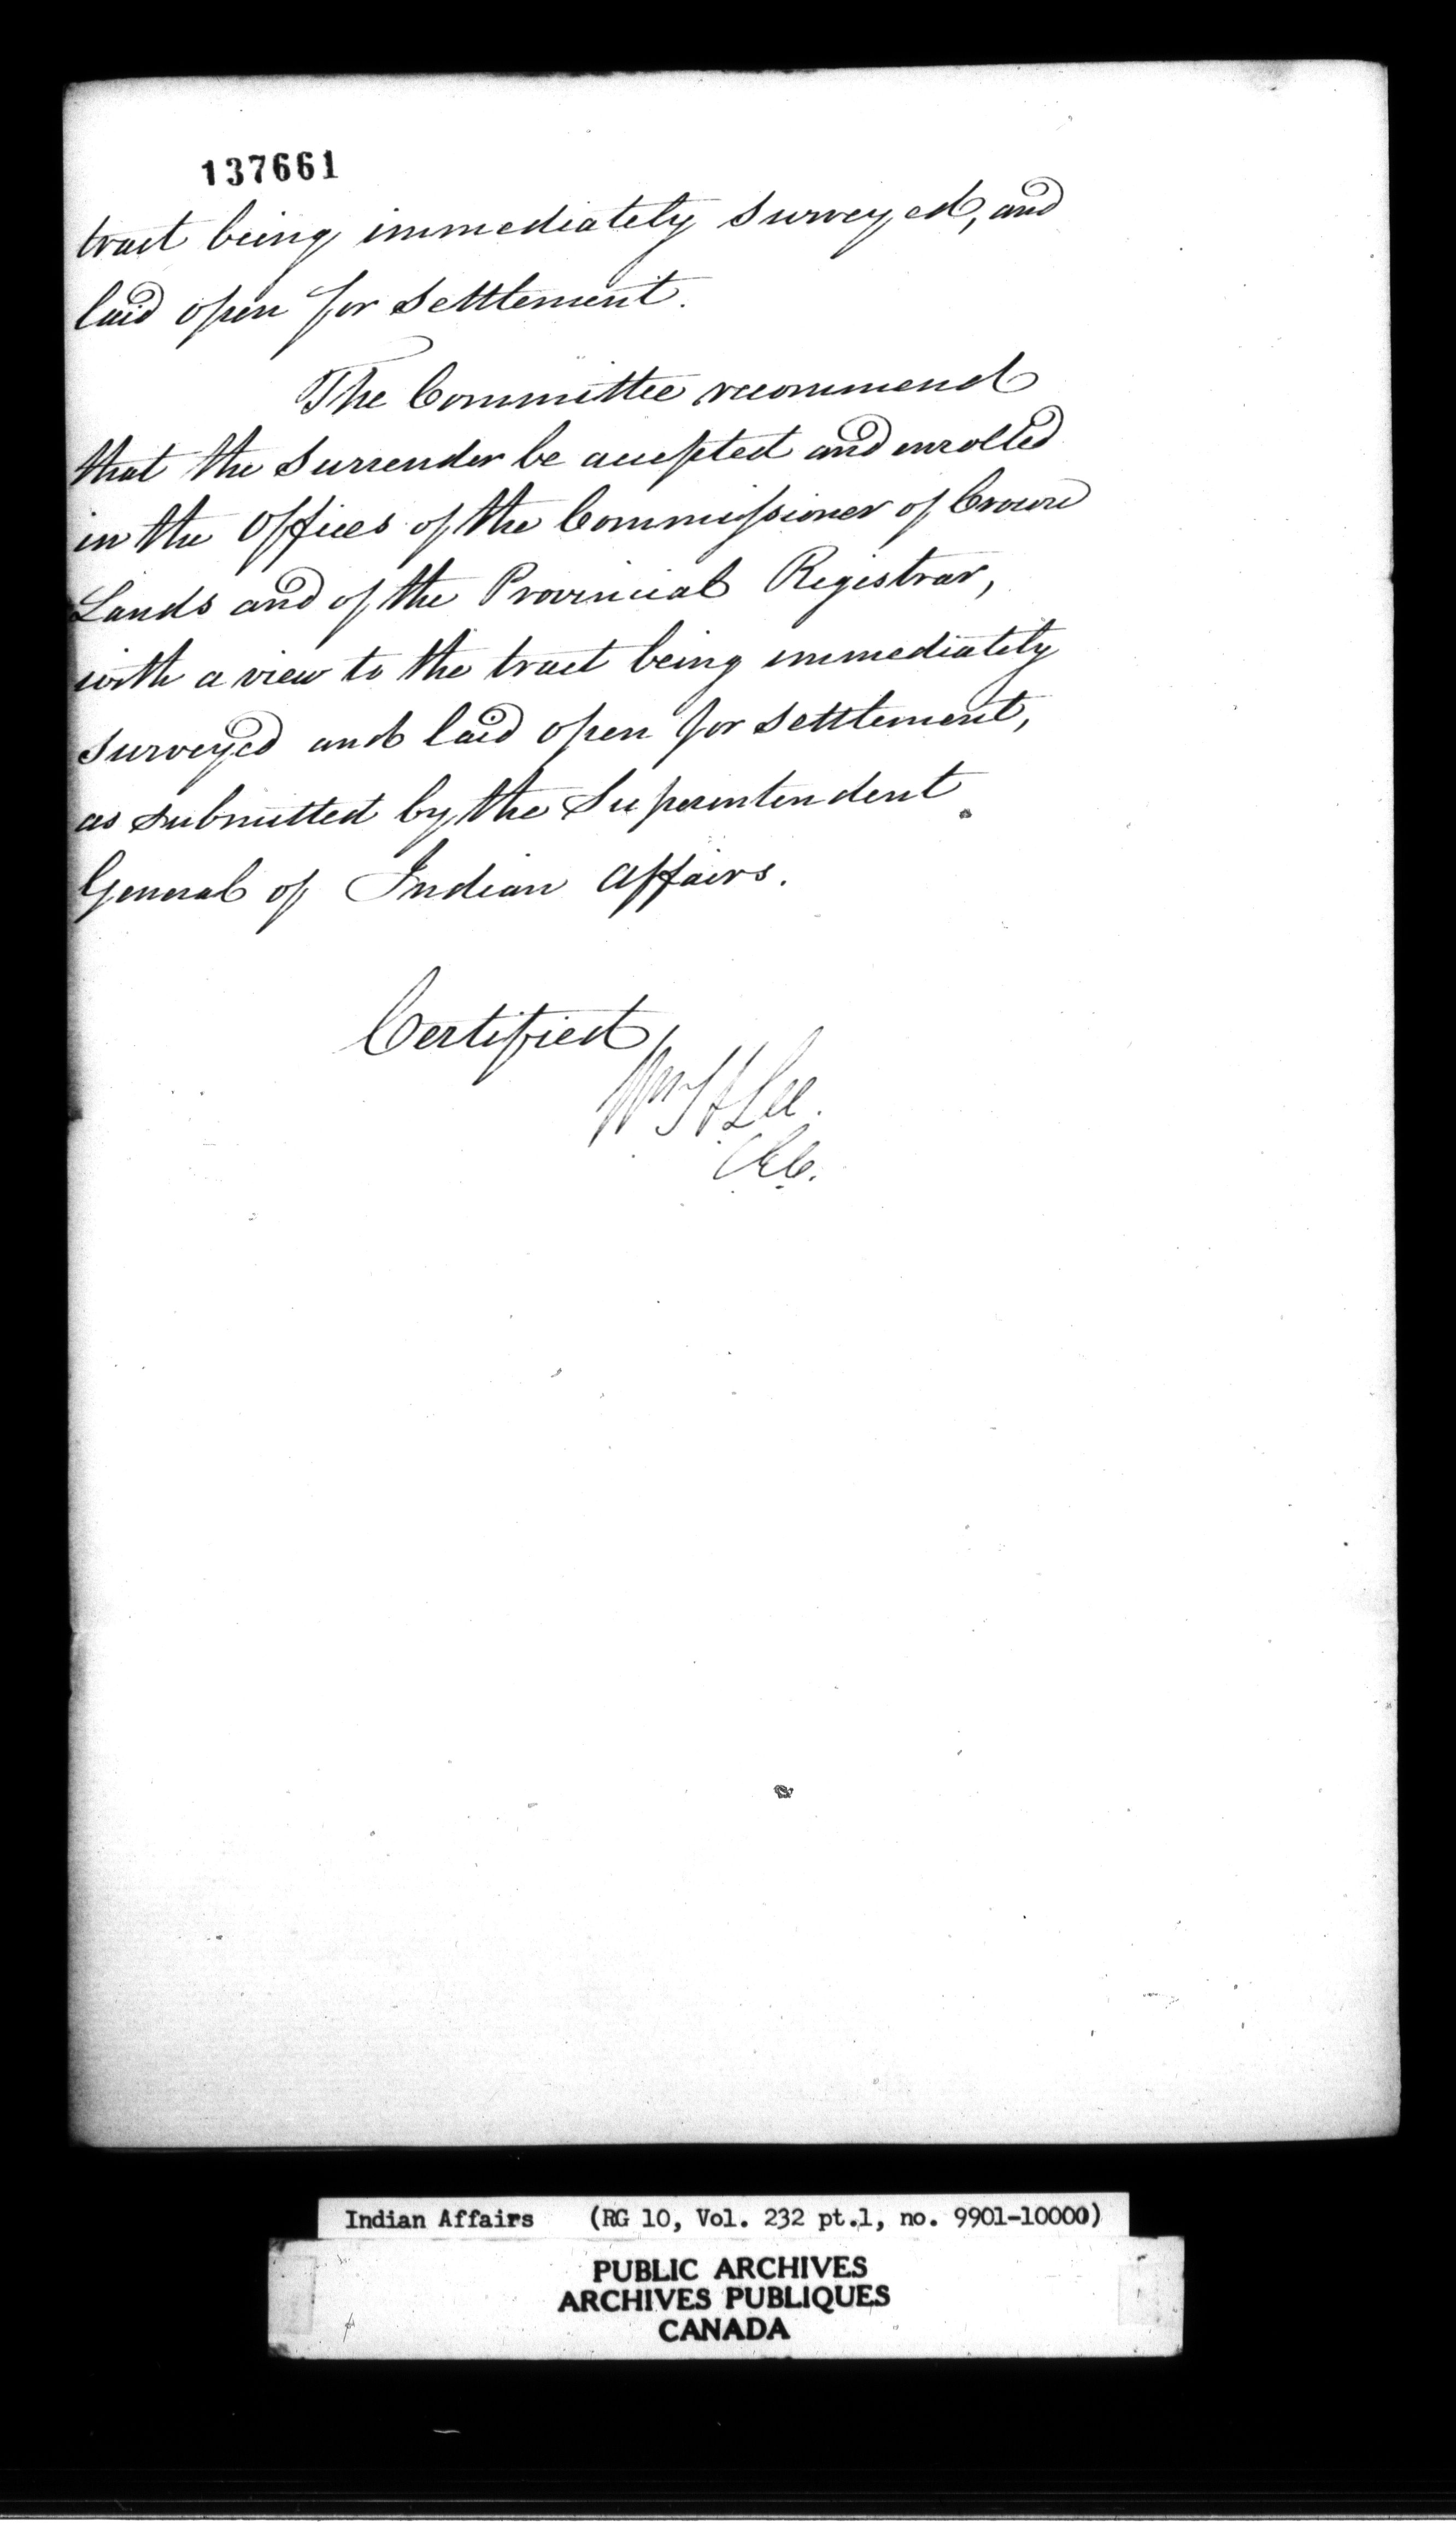 137661
tract being immediately surveyed, and
laid open for settlement.
The Committee recommend
that the surrender be accepted and enrolled
in the Offices of the Commissioner of Crown
Lands and of the Provincial Registrar,
with a view to the tract being immediately
surveyed and laid open for settlement,
as submitted by the Superintendent
General of Indian Affairs.
Certified
Wm H Lee.
C.E.C.
Indian Affairs (RG 10, Vol. 232 pt.1, no. 9901-10000)
PUBLIC ARCHIVES
ARCHIVES PUBLIQUES
CANADA